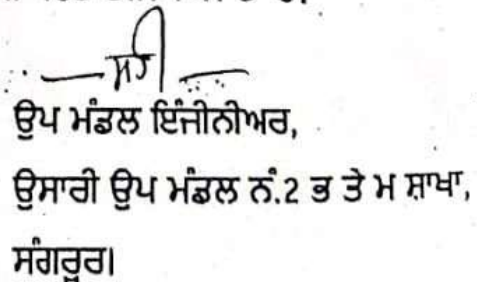 ਸਹੀ
ਉਪ ਮੰਡਲ ਇੰਜੀਨੀਅਰ,
ਉਸਾਰੀ ਉਪ ਮੰਡਲ ਨੰ.2 ਭ ਤੇ ਮ ਸ਼ਾਖਾ,
ਸੰਗਰੂਰ।